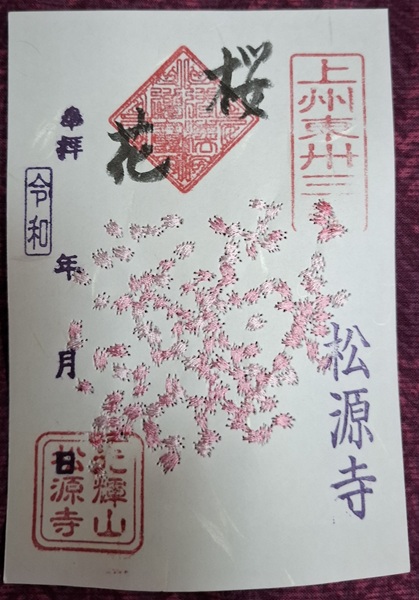 上州東卅三
松源寺
桜花
奉拝
令和
年
月
日
輝山
松源寺